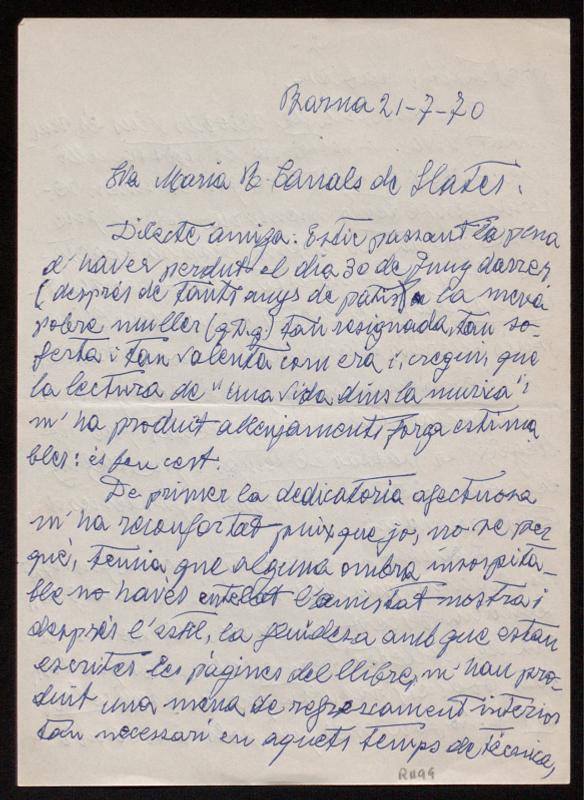 Barna 21-7-70
Sra Maria R. Canals de Llates.
Dilecte amiga: Estic passant la pena
d'haver perdut el dia 30 de Juny darrer
(després de tants anys de patir) a la meva
pobre muller (q.D.g.) tan resignada, tan so-
ferta i tan valenta com era i, cregui, que
la lectura de "una vida dins la musica"
m'ha produit allenjaments força estima
bles: és ben cert.
De primer la dedicatoria afectuosa
m'ha reconfortat puix que jo, no se per
què, temia que alguna ombra insospita-
ble no havès entelat l'amistat nostra i
després l'estil, la fluidesa amb que estan
escrites les pàgines del llibre, m'han pro-
duit una mena de refrescament interior
tan necessari en aquets temps de tècnica,
R1199